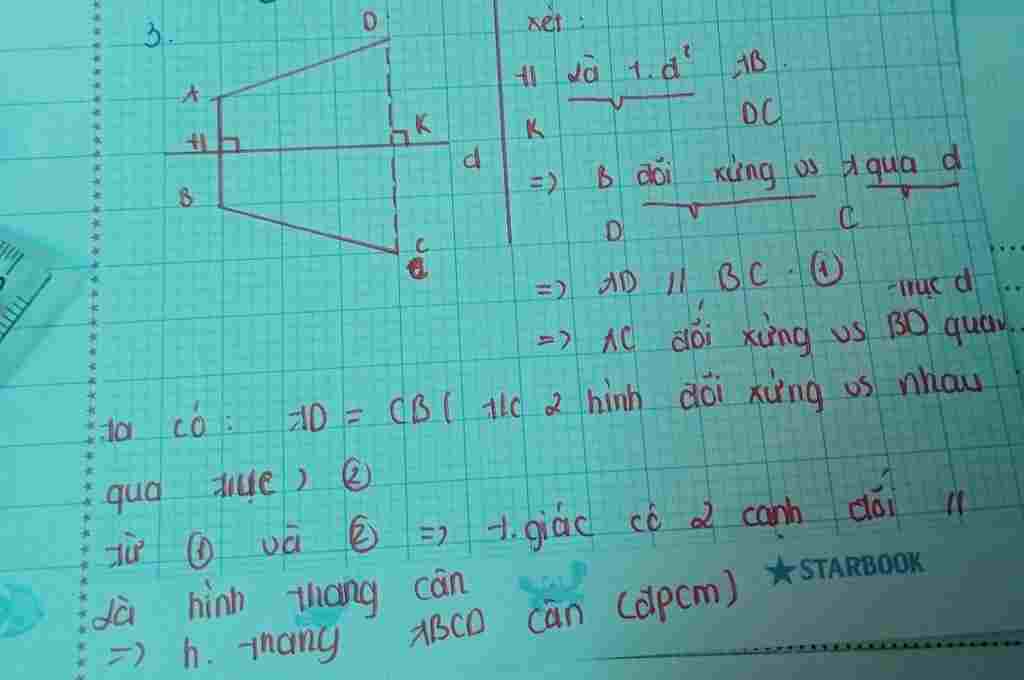 3.
D
A
H
K
d
B
C
xét :
H là t.đ' AB.
K DC
=> B đối xứng vs A qua d
D C
=> AD // BC . ①
=> AC đối xứng vs BD qua trục d
ta có : AD = CB ( t/c 2 hình đối xứng vs nhau
qua trục ) ②
từ ① và ② => t.giác có 2 cạnh đối //
là hình thang cân
=> h. thang ABCD cân (đpcm)
STARBOOK